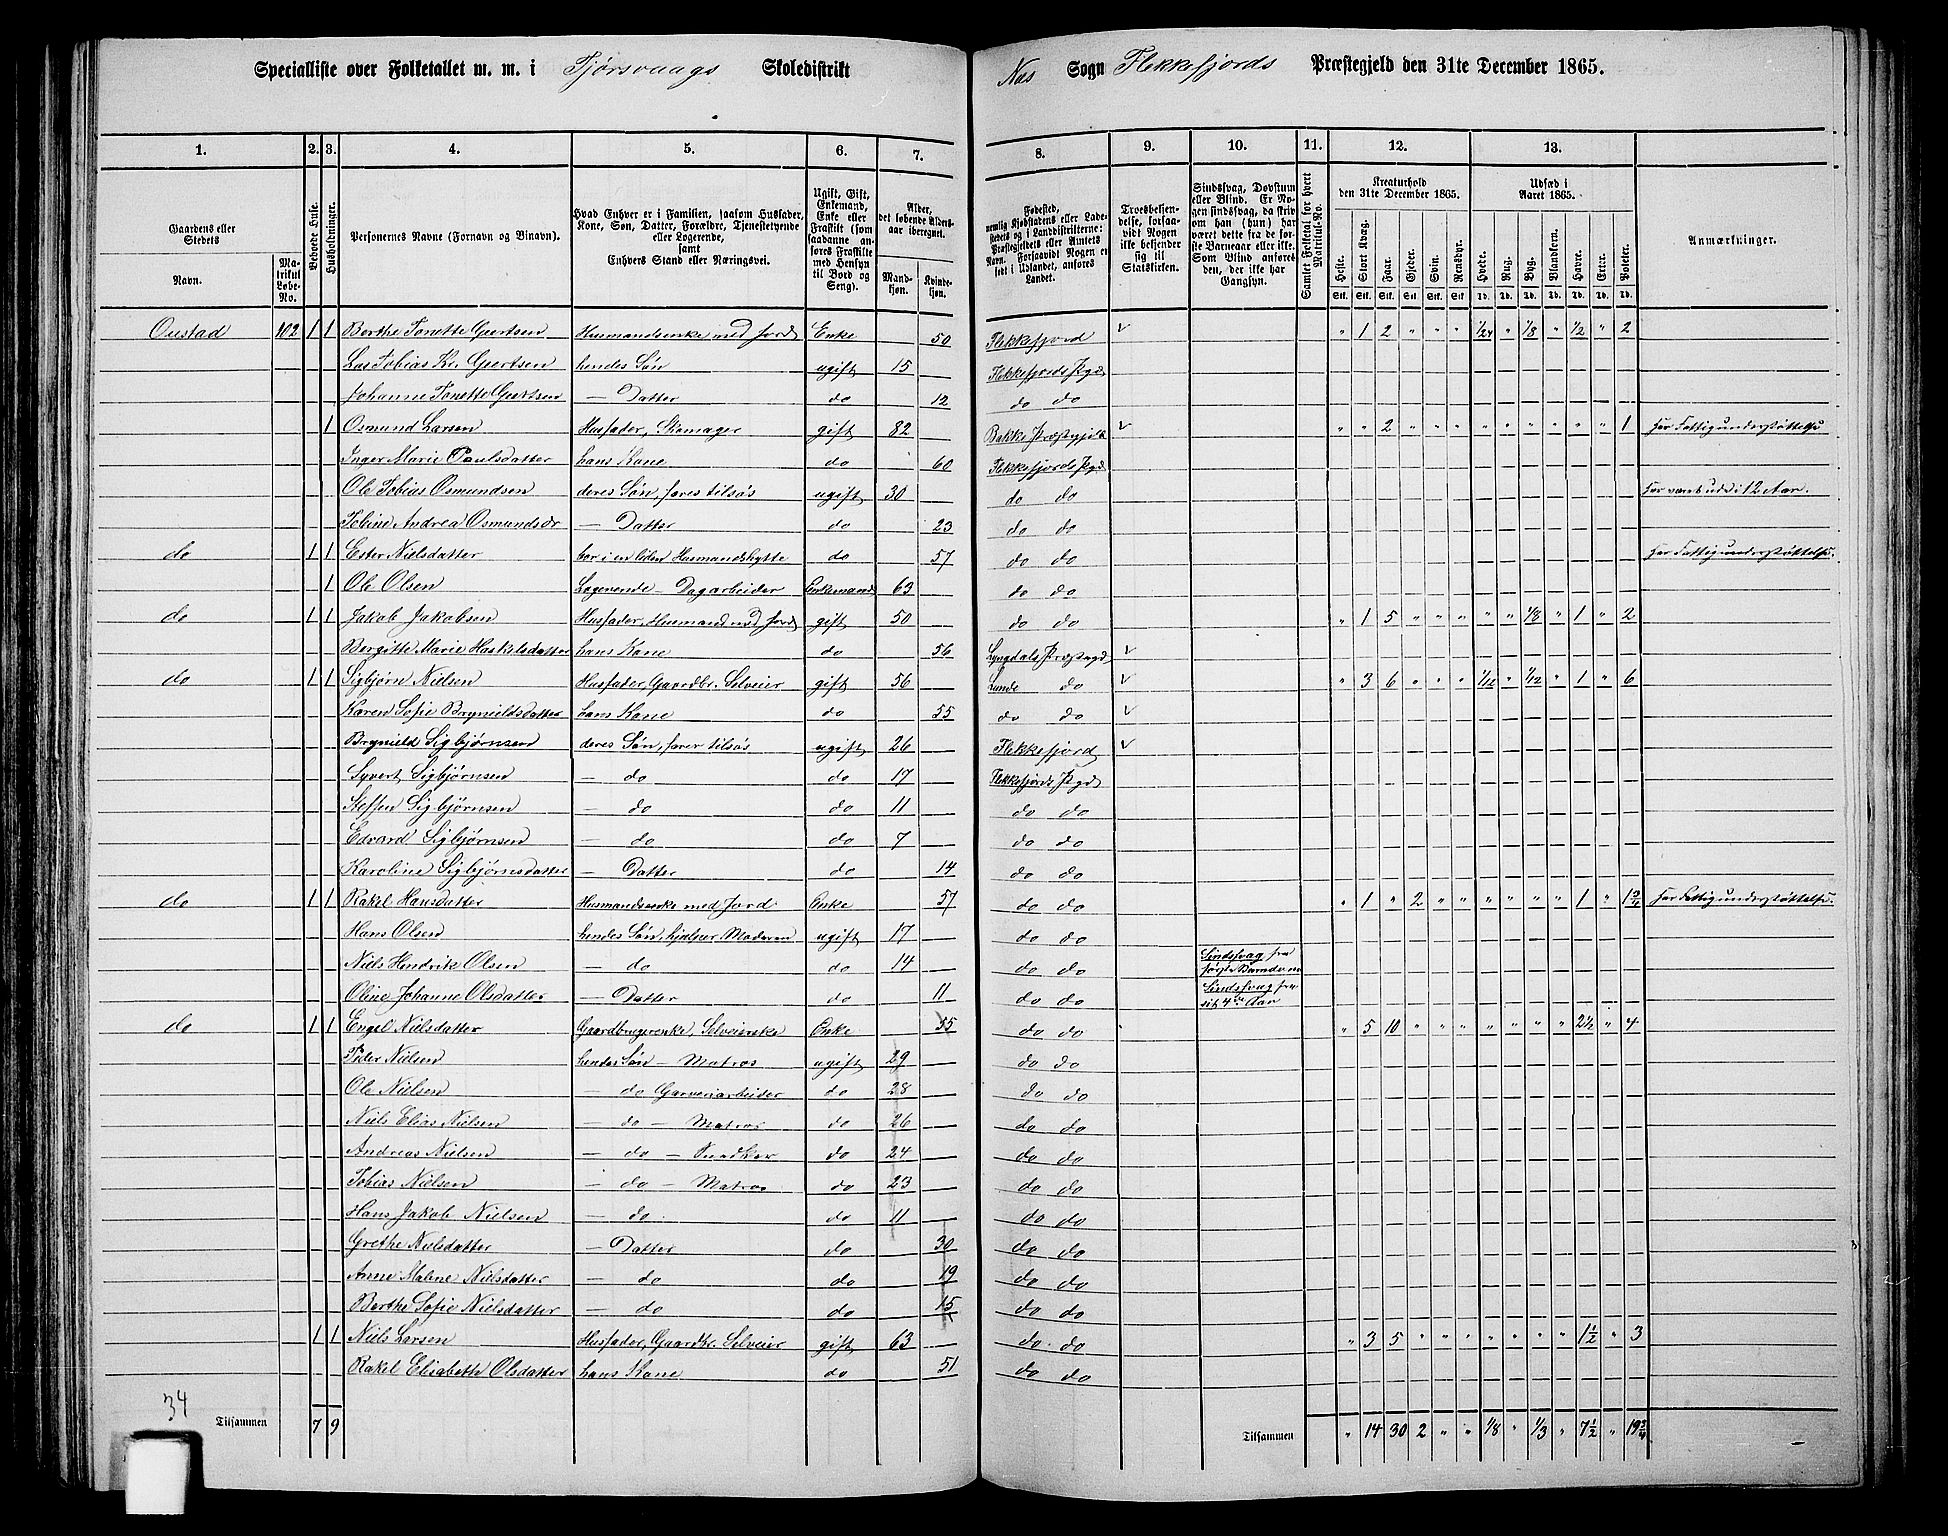 Specialliste over Folketallet m. m. i Tjørsvaags Skoledistrikt Nes Sogn Flekkefjords Præstegjeld den 31te December 1865.
1. 2. 3. 4. 5. 6. 7. 8. 9. 10. 11. 12. 13.
Gaardens eller Stedets
Navn. Matrikul Løbe-No.
Beboede Huse.
Husholdninger.
Personernes Navne (Fornavn og Binavn).
Hvad Enhver er i Familien, saasom Husfader, Kone, Søn, Datter, Forældre, Tjenestetyende eller Logerende, samt Enhvers Stand eller Næringsvei.
Ugift, Gift, Enkemand, Enke eller Fraskilt (som saadanne anføres Fraskilte med Hensyn til Bord og Seng).
Alder, det løbende Alders-aar iberegnet.
Mand-kjøn. Kvinde-kjøn.
Fødested, nemlig Kjøbstadens eller Ladestedets eller i Landdistrikterne: Præstegjeldets eller Amtets Navn. Forsaavidt Nogen er født i Udlandet, anføres Landet.
Troesbekjendelse, forsaavidt Nogen ikke bekjender sig til Statskirken.
Sindssvag, Døvstum eller Blind. Er Nogen sindssvag, da skrives om han (hun) har været det fra de første Barneaar eller ikke. Som Blind anføres den, der ikke har Gangsyn.
Samlet Folketal for hvert Matrikul-No.
Kreaturhold den 31te December 1865.
Heste. Stort Kvæg. Faar. Gjeder. Svin. Rensdyr.
Udsæd i Aaret 1865.
Hvede. Rug. Byg. Blandkorn. Havre. Erter. Poteter.
Stk. Stk. Stk. Stk. Stk. Stk. Td. Td. Td. Td. Td. Td. Td.
Anmærkninger.
Oustad 102 1 1 Berthe Tonette Geertsen Husmandsenke med Jord Enke 50 Flekkefjord " 1 2 " " " 1/24 " 1/8 " 1/2 " 2
Las Tobias Kr. Geertsen hendes Søn ugift 15 Flekkefjords Pgd
Johanne Tonette Geertsen — Datter do 12 do do
1 Osmund Larsen Husfader, Skomager gift 82 Bakke Præstegjeld " " 2 " " " " " " " " " 1 Har Fattigunderstøttelse
Inger Marie Paulsdatter hans Kone do 60 Flekkefjords Pgd
Ole Tobias Osmundsen deres Søn, fares tilsøs ugift 30 do do Har været ude i 12 Aar.
Tobine Andrea Osmundsdr — Datter do 23 do do
do 1 1 Ester Nielsdatter bor i en liden Husmandshytte do 57 do do Har Fattigunderstøttelse
1 Ole Olsen Logerende – Dagarbeider Enkemand 63 do do
do 1 1 Jakob Jakobsen Husfader, Husmand med Jord gift 50 do do " 1 5 " " " " " 1/8 " 1 " 2
Bergitte Marie Haskelsdatter hans Kone do 56 Lyngdals Præstegd
do 1 1 Sigbjørn Nielsen Husfader, Gaardbr. Selveier gift 56 Lunde do " 3 6 " " " 1/12 " 1/12 " 1 " 6
Karen Sofie Brynildsdatter hans Kone do 55 do do
Brynild Sigbjørnsen deres Søn, farer tilsøs ugift 26 Flekkefjord
Syvert Sigbjørnsen — do do 17 Flekkefjords Pgd
Steffen Sigbjørnsen — do do 11 do do
Edvard Sigbjørnsen — do do 7 do do
Karoline Sigbjørnsdatter — Datter do 14 do do
do 1 1 Rakel Hansdatter Husmandsenke med Jord Enke 57 do do " 1 " 2 " " " " " " 1 " 1 3/4 Har Fattigunderstøttelse
Hans Olsen hendes Søn, hjælper Moderen ugift 17 do do
Niels Hendrik Olsen — do do 14 do do Sindssvag fra første Barndom
Oline Johanne Olsdatter — Datter do 11 do do Sindssvag fra sit 4de Aar
do 1 1 Engel Nielsdatter Gaardbrugerenke, Selveierske Enke 55 do do " 5 10 " " " " " " " 2 1/2 " 4
Peder Nielsen hendes Søn – Matros ugift 29 do do
Ole Nielsen — do Garveriarbeider do 28 do do
Niels Elias Nielsen — do – Matros do 26 do do
Andreas Nielsen — do – Bundtker do 24 do do
Tobias Nielsen — do – Matros do 23 do do
Hans Jakob Nielsen — do do 11 do do
Grethe Nielsdatter — Datter do 30 do do
Anne Malene Nielsdatter — do do 19 do do
Berthe Sofie Nielsdatter — do do 15 do do
1 1 Niels Larsen Husfader, Gaardbr. Selveier gift 63 do do " 3 5 " " " " " " " 1 1/2 " 3
Rakel Elisabeth Olsdatter hans Kone do 51 do do
34
Tilsammen 7 9 Tilsammen " 14 30 2 " " 1/8 " 1/3 " 7 1/2 " 19 3/4